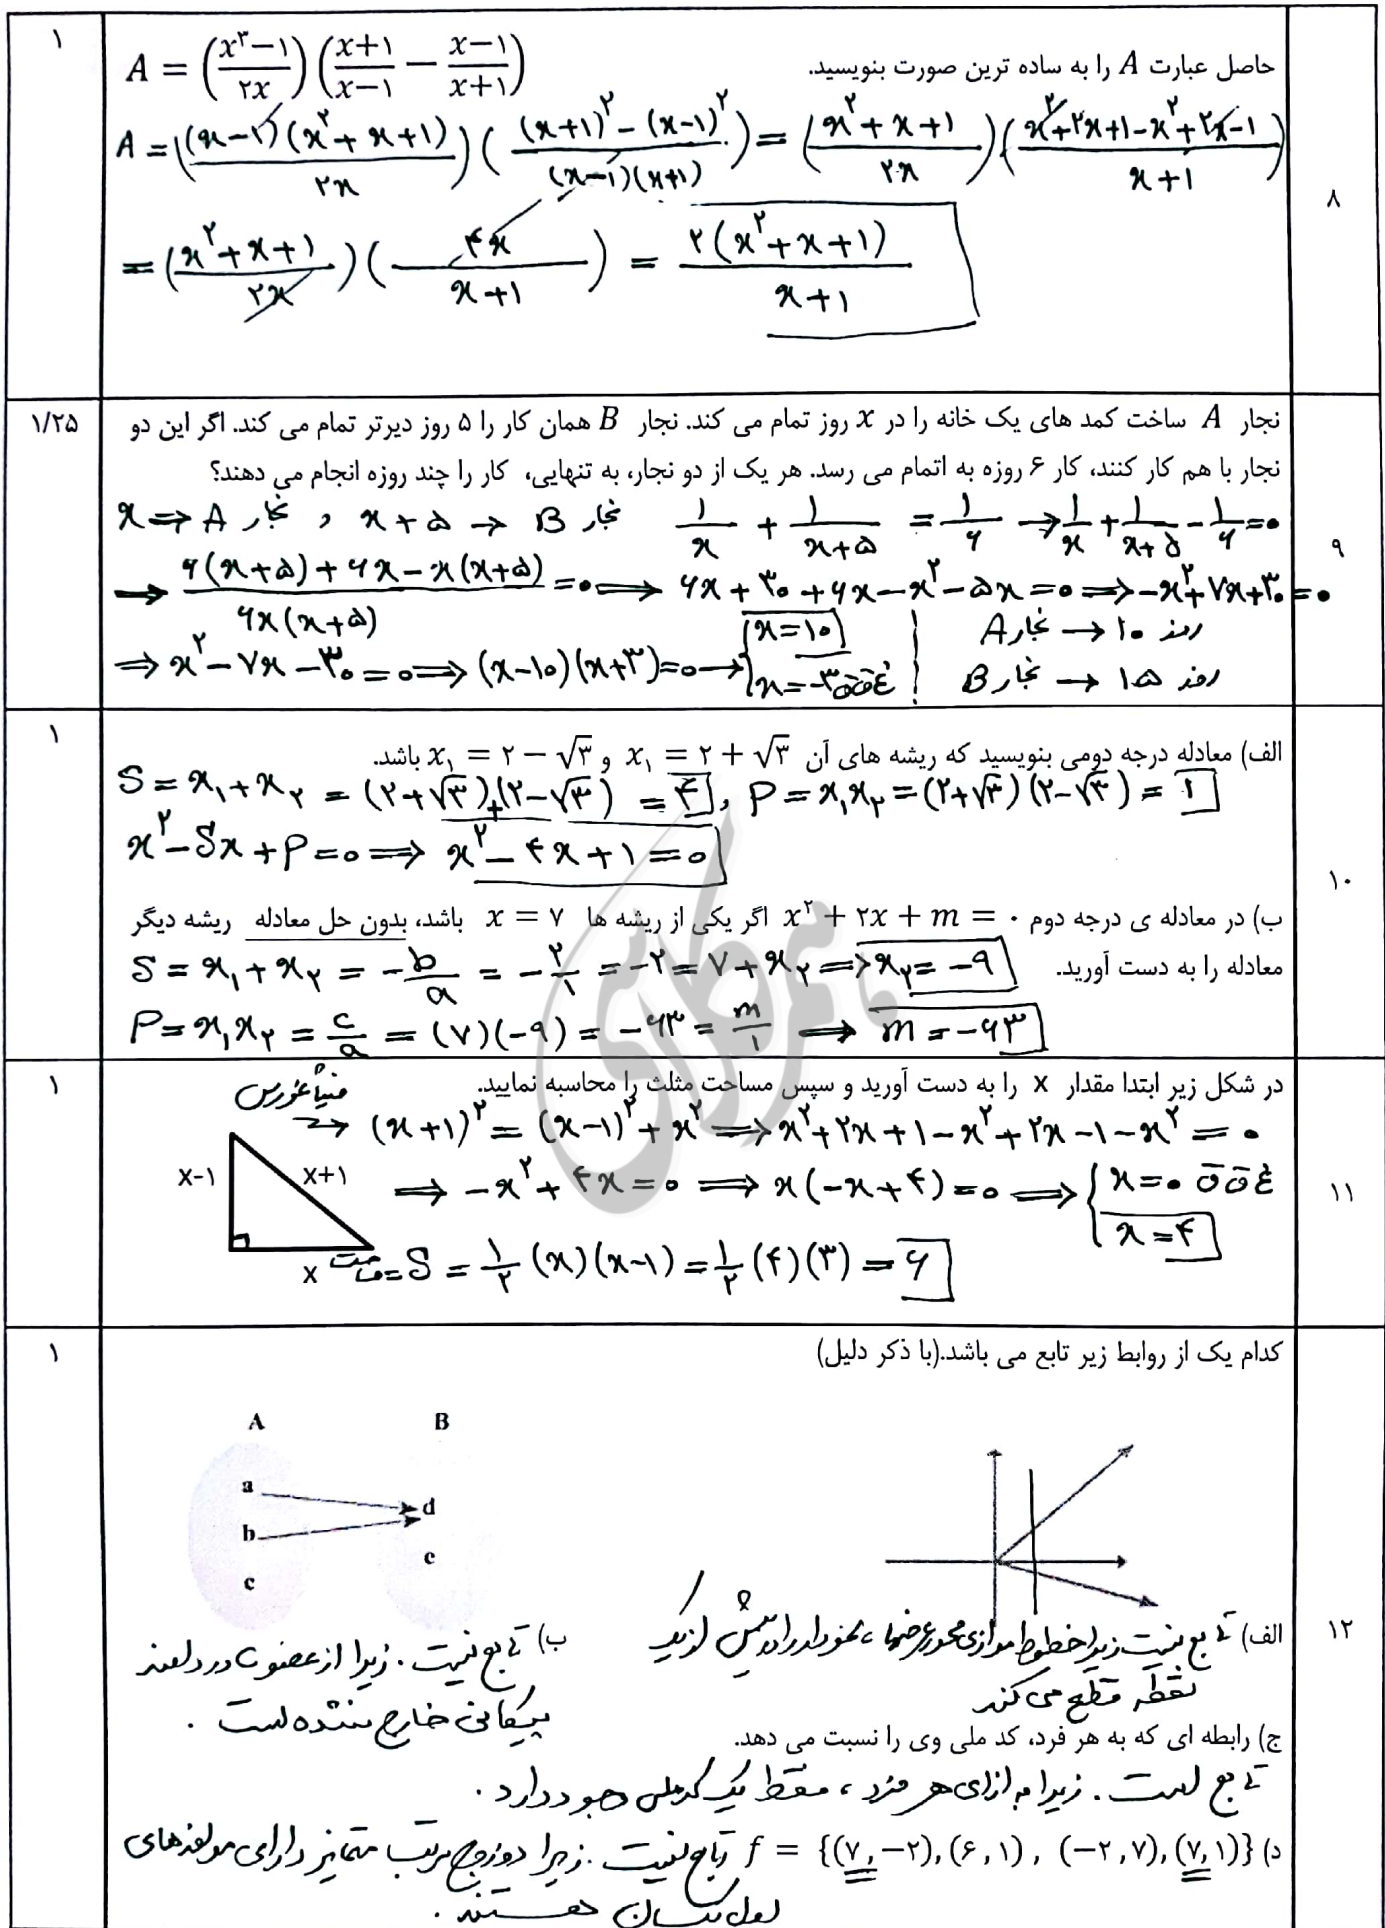 ۱
حاصل عبارت A را به ساده ترین صورت بنویسید.
A = (x^۳−۱ / ۲x) (x+۱ / x−۱ − x−۱ / x+۱)
۸
A = ((x−۱)(x^۲+x+۱) / ۲x) ((x+۱)^۲−(x−۱)^۲ / (x−۱)(x+۱)) = (x^۲+x+۱ / ۲x) (x^۲+۲x+۱−x^۲+۲x−۱ / x+۱)
= (x^۲+x+۱ / ۲x) (۴x / x+۱) = ۲(x^۲+x+۱) / x+۱
۱/۲۵
نجار A ساخت کمد های یک خانه را در x روز تمام می کند. نجار B همان کار را ۵ روز دیرتر تمام می کند. اگر این دو
نجار با هم کار کنند، کار ۶ روزه به اتمام می رسد. هر یک از دو نجار، به تنهایی، کار را چند روزه انجام می دهند؟
۹
x ⇒ نجار A , x+۵ → نجار B ۱/x + ۱/x+۵ = ۱/۶ → ۱/x + ۱/x+۵ − ۱/۶ = ۰
→ ۶(x+۵)+۶x−x(x+۵) / ۶x(x+۵) = ۰ ⟹ ۶x+۳۰+۶x−x^۲−۵x=۰ ⟹ −x^۲+۷x+۳۰=۰
⟹ x^۲−۷x−۳۰=۰ ⟹ (x−۱۰)(x+۳)=۰ → { x=۱۰
x=−۳ غ ق ق
نجار A → ۱۰ روز
نجار B → ۱۵ روز
۱
الف) معادله درجه دومی بنویسید که ریشه های آن x₁ = ۲ + √۳ و x₁ = ۲ − √۳ باشد.
S = x₁+x₂ = (۲+√۳)+(۲−√۳) = ۴ , P = x₁x₂ = (۲+√۳)(۲−√۳) = ۱
x^۲−Sx+P=۰ ⟹ x^۲−۴x+۱=۰
۱۰
ب) در معادله ی درجه دوم x^۲ + ۲x + m = ۰ اگر یکی از ریشه ها x = ۷ باشد، بدون حل معادله ریشه دیگر
معادله را به دست آورید.
S = x₁+x₂ = −b/a = −۲/۱ = −۲ = ۷+x₂ ⟹ x₂ = −۹
P = x₁x₂ = c/a = (۷)(−۹) = −۶۳ = m/۱ ⟹ m = −۶۳
۱
در شکل زیر ابتدا مقدار x را به دست آورید و سپس مساحت مثلث را محاسبه نمایید.
فیثاغورس
→ (x+۱)^۲ = (x−۱)^۲ + x^۲ ⟹ x^۲+۲x+۱−x^۲+۲x−۱−x^۲ = ۰
x-۱
x+۱
x
۱۱
⟹ −x^۲+۴x=۰ ⟹ x(−x+۴)=۰ ⟹ { x=۰ غ ق ق
x=۴
مساحت = S = ۱/۲ (x)(x−۱) = ۱/۲ (۴)(۳) = ۶
۱
کدام یک از روابط زیر تابع می باشد.(با ذکر دلیل)
A B
a
b
c
d
e
۱۲
الف) تابع نیست زیرا خطوط موازی محور عرضها، نمودار را در بیش از یک
نقطه قطع می کند
ب) تابع نیست. زیرا از عضو c در دامنه
پیکانی خارج نشده است.
ج) رابطه ای که به هر فرد، کد ملی وی را نسبت می دهد.
تابع است. زیرا به ازای هر فرد، فقط یک کدملی وجود دارد.
د) f = {(۷,−۲), (۶,۱), (−۲,۷), (۷,۱)} تابع نیست. زیرا دو زوج مرتب متمایز دارای مولفه‌های
اول یکسان هستند.